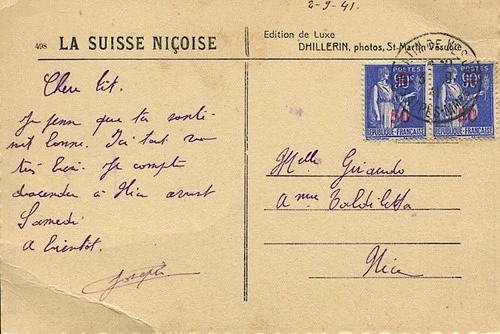 2-9-41.
498 LA SUISSE NIÇOISE
Edition de Luxe
DHILLERIN, photos, St-Martin Vésubie
Chère
Je pense que ta santé
est bonne. Ici tout va
très bien. Je compte
descendre à Nice avant
Samedi
A bientôt.
Joseph
POSTES
90c
50
REPUBLIQUE-FRANÇAISE
POSTES
90c
50
REPUBLIQUE-FRANÇAISE
Melle Giraudo
4 rue
Nice